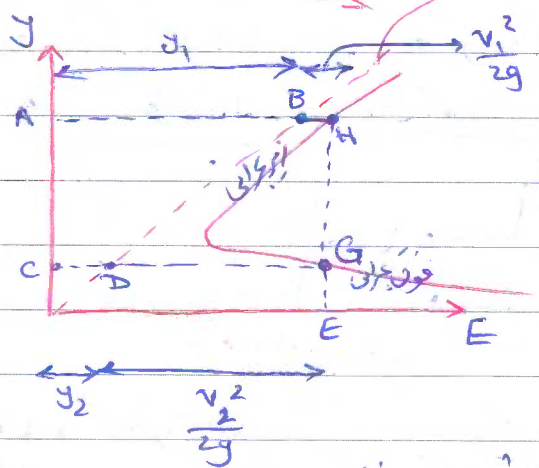 y
y₁
v₁²/2g
A
B
H
زیربحرانی
C
D
G
فوق بحرانی
E
E
y₂
v₂²/2g